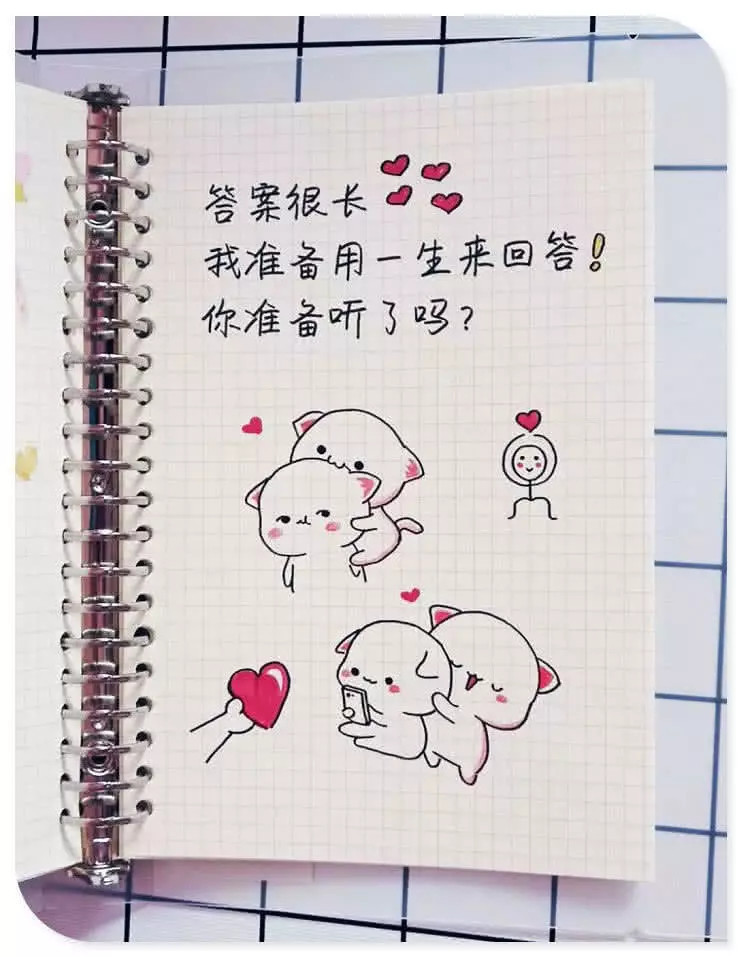 答案很长
我准备用一生来回答!
你准备听了吗?